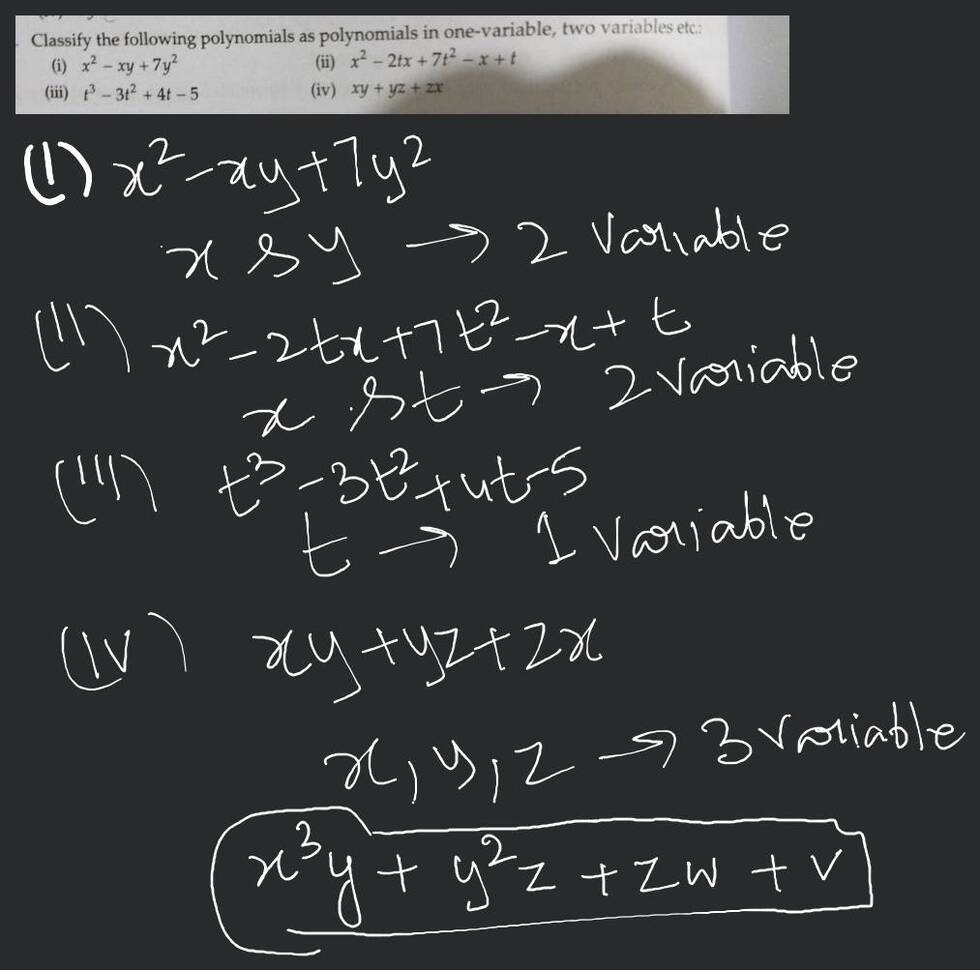 Classify the following polynomials as polynomials in one-variable, two variables etc.:
(i) x² – xy + 7y² (ii) x² – 2tx + 7t² – x + t
(iii) t³ – 3t² + 4t – 5 (iv) xy + yz + zx
(I) x²-xy+7y²
x & y → 2 Variable
(II) x²-2tx+7t²-x+t
x & t → 2 variable
(III) t³-3t²+4t-5
t → 1 Variable
(IV) xy+yz+zx
x, y, z → 3 variable
x³y + y²z + zw + v